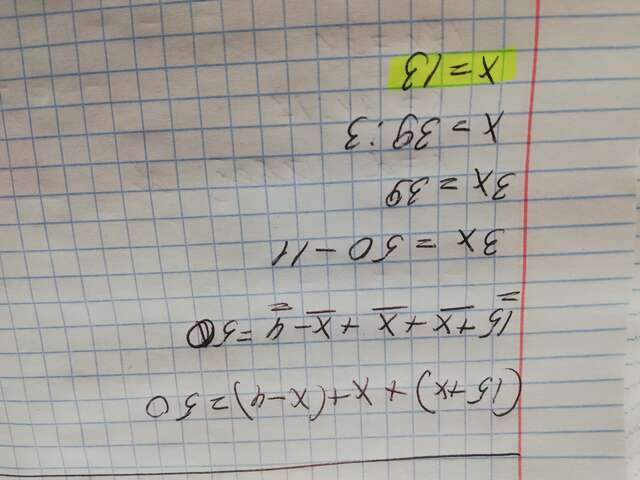 (15+x) + x + (x-4) = 50
15 + x + x + x - 4 = 50
3x = 50 - 11
3x = 39
x = 39 : 3
x = 13